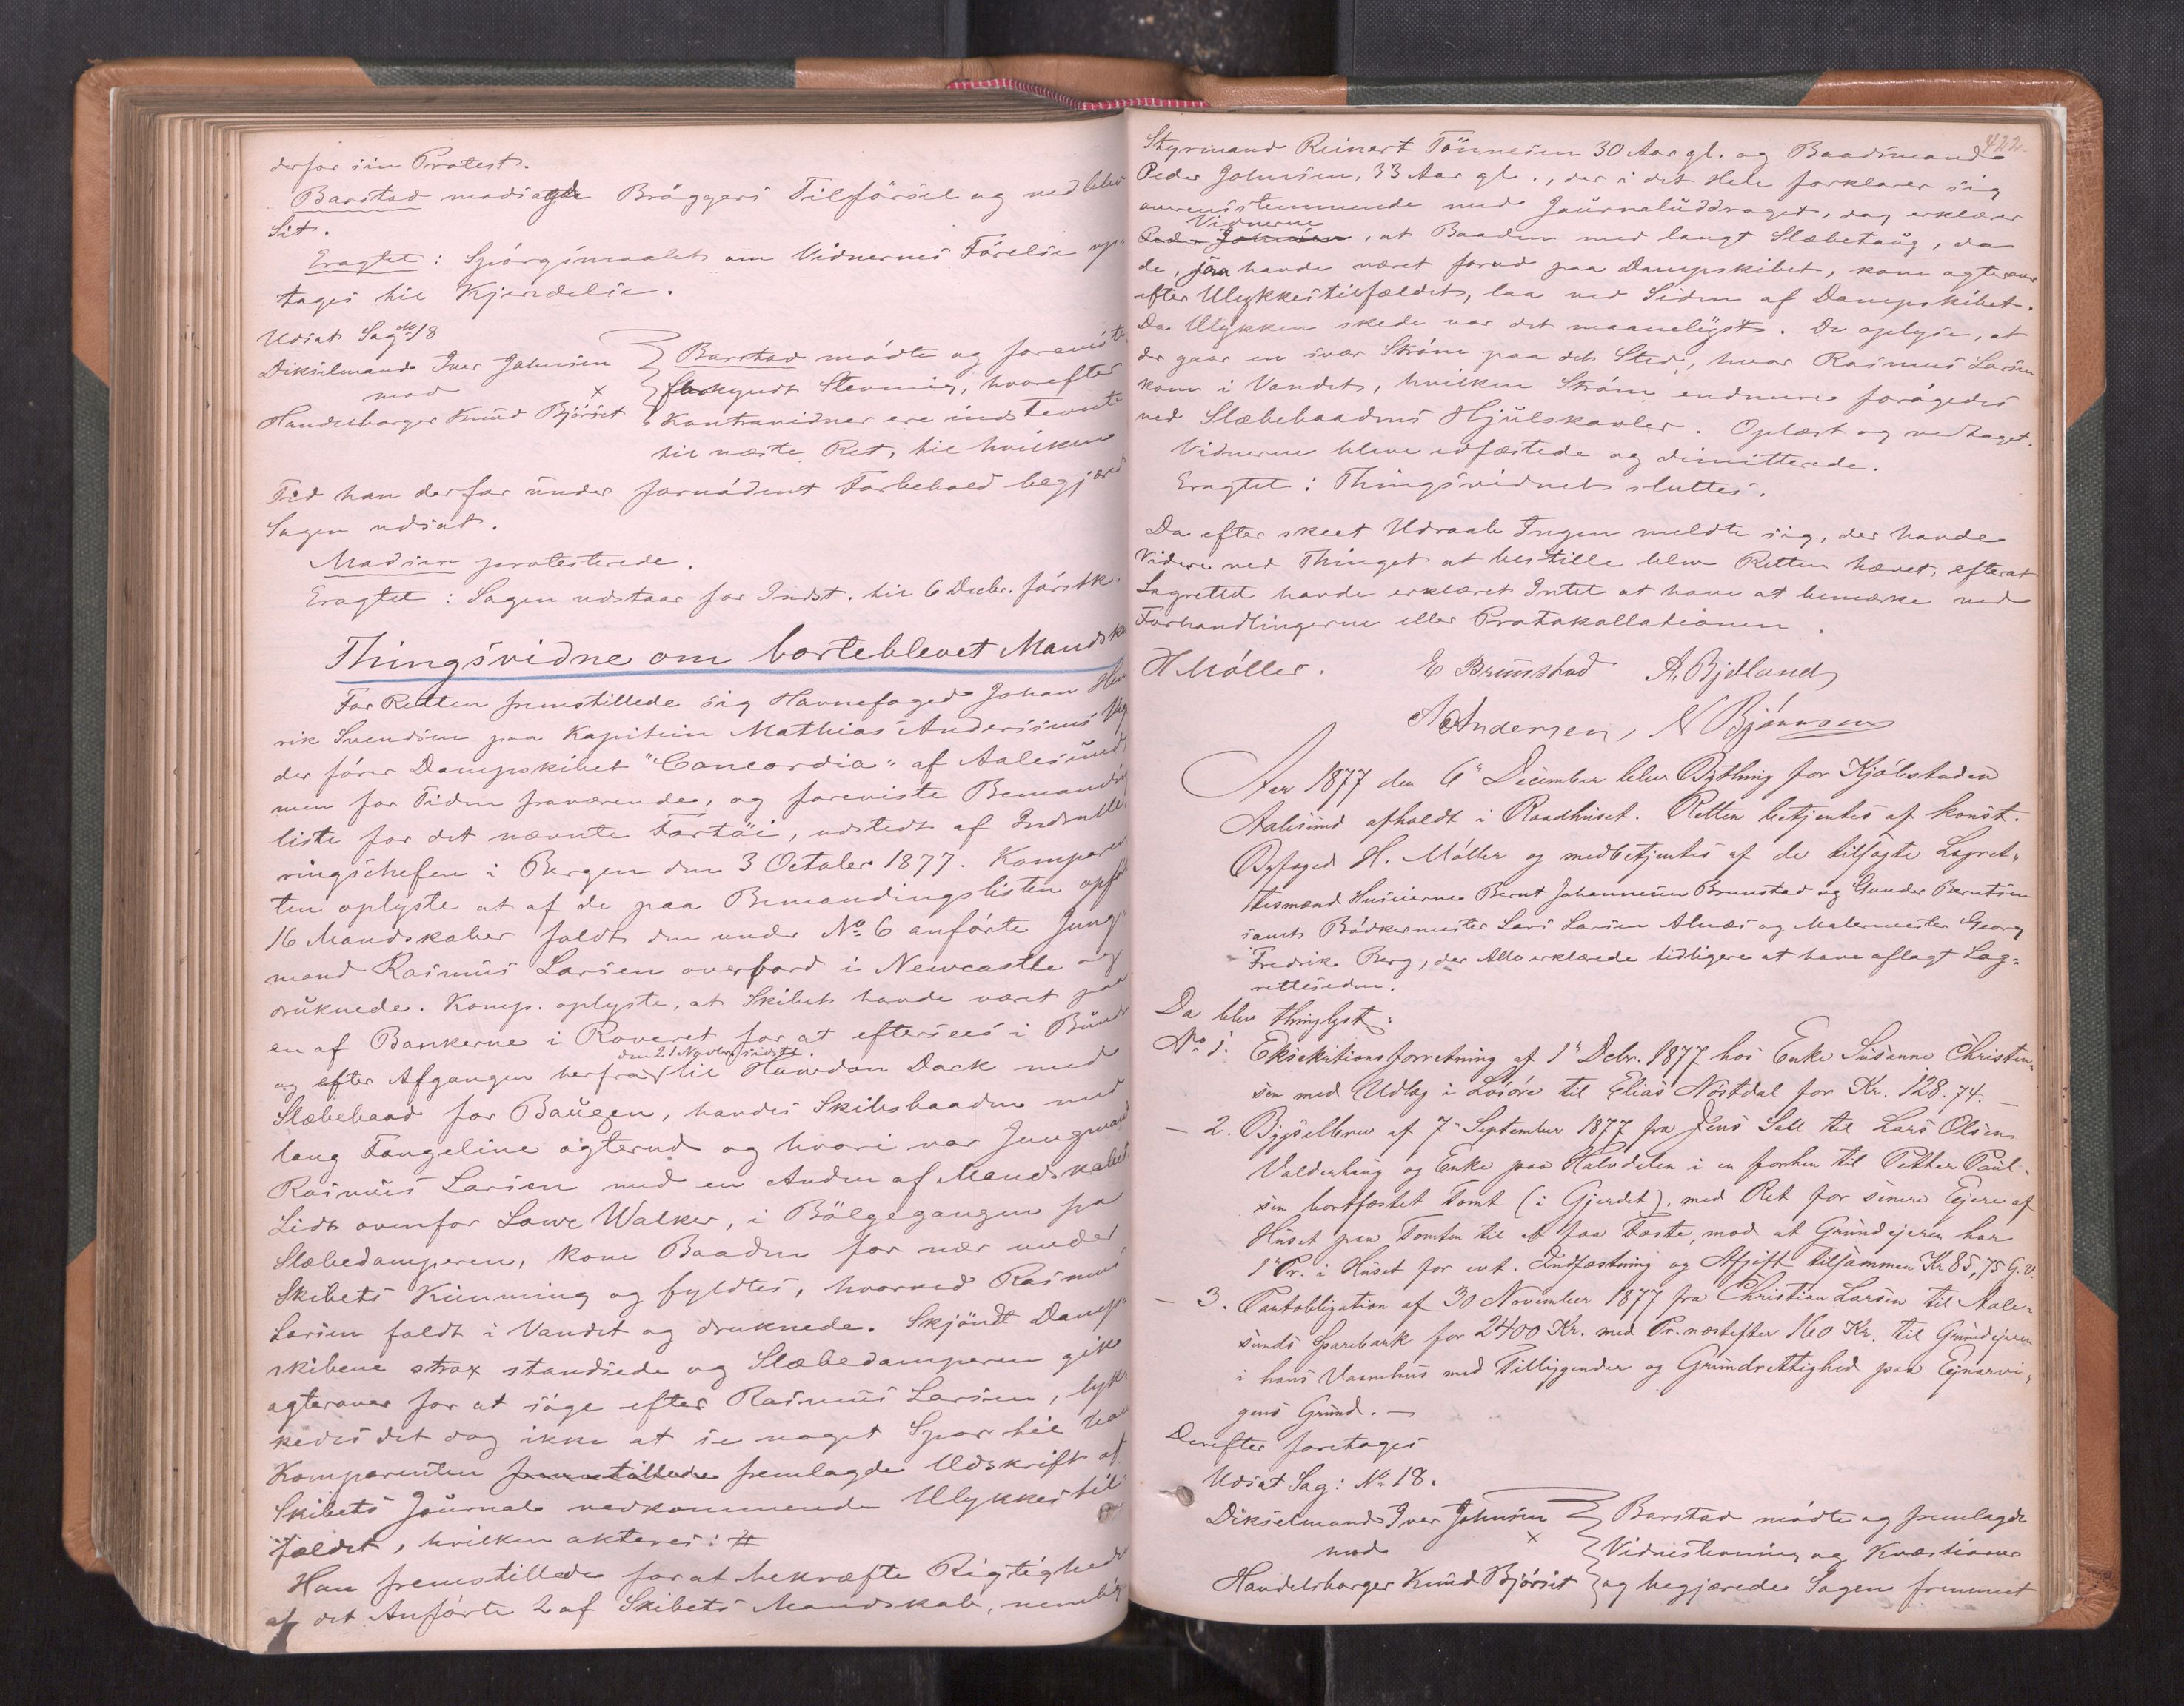 derfor sin Protest.
Barstad modsagde Bröggers Tilförsel og vedblev
Sit.
Eragtet: Spörgsmaalet om Vidnernes Förelse op-
tages til Kjendelse.
Udsat Sag No 18
Dikselmand Iver Johnsen
mod
Handelsborger Knud Bjørset
Barstad mödte og foreviste
forkyndt Stevning, hvorefter
Kontravidner ere indstevnte
til næste Ret, til hvilken
Tid han derfor under fornödent Forbehold begjæred
Sagen udsat.
Madsen protesterede.
Eragtet: Sagen udstaar for Indst. til 6 Decbr. förstk.
Thingsvidne om borteblevet Mandsk
For Retten fremstillede sig Havnefoged Johan Hen
rik Svendsen paa Kaptein Mathias Anderssens Veg
der förer Dampskibet "Concordia" af Aalesund
men for Tiden fraværende, og foreviste Bemandings
liste for det nævnte Fartöi, udstedt af Indrulle
ringschefen i Bergen den 3 October 1877. Komparen
ten oplyste at af de paa Bemandingslisten opförte
16 Mandskaber faldt den under No 6 anförte Jung-
mand Rasmus Larsen overbord i Newcastle og
druknede. Komp. oplyste, at Skibet havde været paa
en af Bankerne i Roveret for at eftersees i Bunden
og efter Afgangen herfra den 21 Novbr. sidstl. til Hawdon Dock med
Slæbebaad for Baugen, havdes Skibsbaaden med
lang Fangeline agterud og hvori var Jungmand
Rasmus Larsen med en Anden af Mandskabet
Lidt ovenfor Lowe Walker, i Bölgegangen fra
Slæbedamperen, kom Baaden for nær under
Skibets Kimming og fyldtes, hvorved Rasmus
Larsen faldt i Vandet og druknede. Skjöndt Damp-
skibene strax standsede og Slæbedamperen gik
agterover for at söge efter Rasmus Larsen, lyk-
kedes det dog ikke at se noget Spor til ham
Komparenten fremstillede fremlagde Udskrift af
Skibets Journal vedkommende Ulykkestil-
fældet, hvilken akteres: #
Han fremstillede for at bekræfte Rigtighed
af det Anförte 2 af Skibets Mandskab, nemlig
422.
Styrmand Reinert Tönnesen 30 Aar gl. og Baadsmand
Peder Johnsen, 33 Aar gl., der i det Hele forklarer sig
overensstemmende med Journaluddraget, dog erklærer
Vidnerne
Peder Johnsen, at Baaden med langt Slæbetaug, da
de, som havde været forud paa Dampskibet, kom agterover
efter Ulykkestilfældet, laa ved Siden af Dampskibet.
Da Ulykken skede var det maanelyst. De oplyse, at
der gaar en svær Ström paa det Sted, hvor Rasmus Larsen
kom i Vandet, hvilken Ström endmere forögedes
ved Slæbebaadens Hjulskovler. Oplæst og vedtaget.
Vidnerne bleve edfæstede og dimitterede.
Eragtet: Thingsvidnet sluttes.
Da efter skeet Udraab Ingen meldte sig, der havde
Videre ved Thinget at bestille blev Retten hævet, efterat
Lagrettet havde erklæret Intet at have at bemærke ved
Forhandlingerne eller Protokollationen.
H Möller. E Brunstad A. Bjelland
A Andersen, N Bjönnsen
Aar 1877 den 6te December blev Bything for Kjöbstaden
Aalesund afholdt i Raadhuset. Retten betjentes af konst.
Byfoged H. Möller og medbetjentes af de tilsagte Lagret-
tesmænd Huseierne Bernt Johannesen Brunstad og Gunder Berntsen
samt Bödkermester Lars Larsen Alnæs og Malermester Georg
Fredrik Berg, der Alle erklærede tidligere at have aflagt Lag-
retteseden.
Da blev thinglyst:
No 1. Eksekutionsforretning af 1te Decbr. 1877 hos Enke Susanne Christen-
sen med Udlæg i Lösöre til Elias Nöstdal for Kr. 128.74. —
— 2. Bygselbrev af 7de September 1877 fra Jens Sell til Lars Olsen
Valderhaug og Enke paa Halvdelen i en forhen til Petter Paul-
sen bortfæstet Tomt (i Gjerdet), med Ret for senere Ejere af
Huset paa Tomten til at faa Fæste, mod at Grundejeren har
1te Pr. i Huset for evt. Indfæstning og Afgift tilsammen Kr 85,75 G.V.
— 3. Pantobligation af 30 November 1877 fra Christian Larsen til Aale-
sunds Sparebank for 2400 Kr. med Pr. næstefter 160 Kr. til Grundejeren
i hans Vaanehus med Tilliggender og Grundrettighed paa Ejnarvi-
gens Grund. —
Derefter foretoges
Udsat Sag: No 18.
Dikselmand Iver Johnsen
mod
Handelsborger Knud Bjørset
Barstad mödte og fremlagde
Vidnestevning og Kvæstioner
og begjærede Sagen fremmet